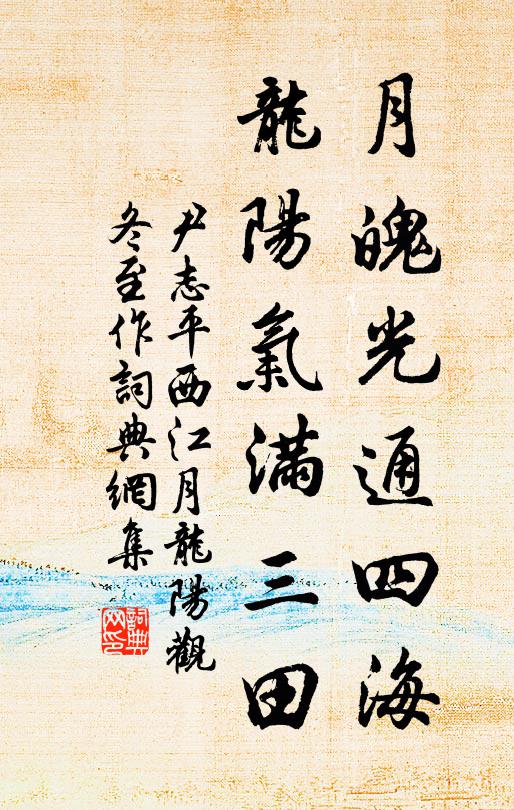 月魄光通四海
龍陽氣滿三田
尹志平西江月龍陽觀
冬至作詞典網集
詞典
网印